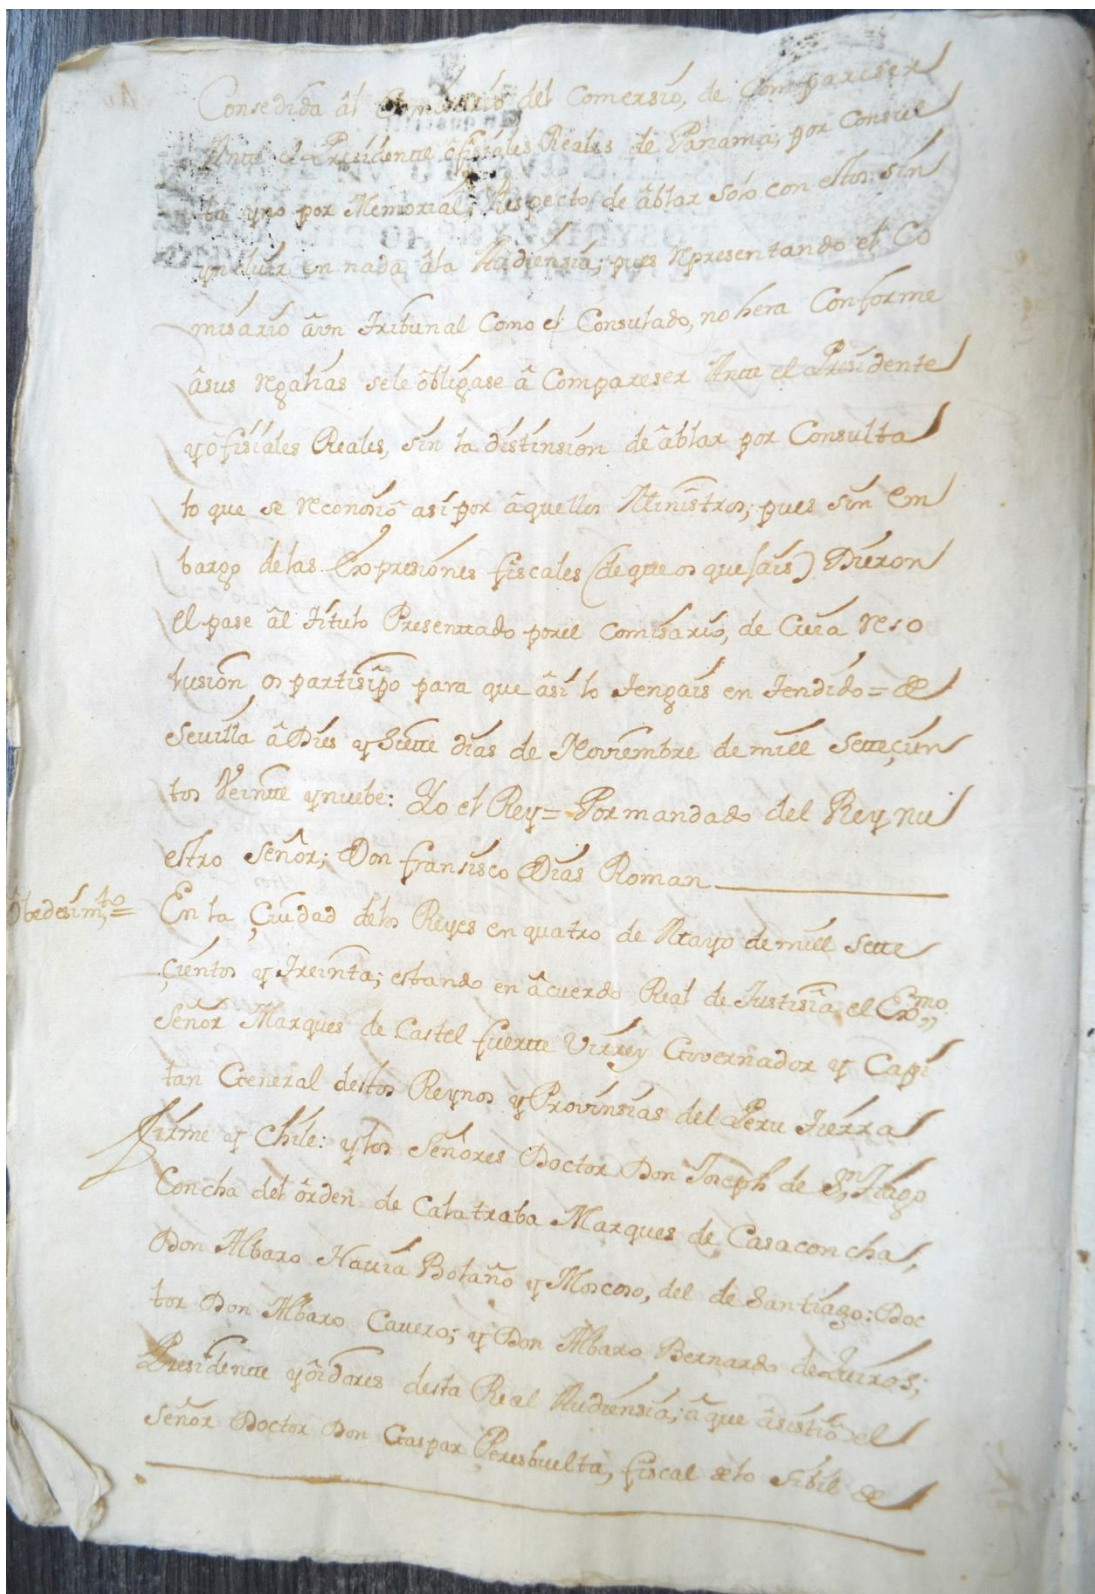 Consedida âl Comisario del Comersio, de Compareser
Ante el Presidente ofisiales Reales de Panama, por Consul
ta yno por Memorial, Respecto de âblar solo con ellos sin
yncluir en nada âla Audiensia; pues Representando el Co
misario âvn Tribunal Como el Consulado, no hera Conforme
âsus Regalias sele obligase â Compareser Ante el Presidente
yofisiales Reales, sin la distinsion de âblar por Consulta
lo que se Reconosio asi por âquellos Ministros; pues sin Em
bargo delas Expresiones fiscales (de que os quejais) Dieron
el pase âl Titulo Presenttado porel Comisario, de Cuia Reso
lusion os partisipo para que âsi lo Tengais en Tendido = de
Sevilla â Dies y Siette dias de Noviembre de mill Setteçien
tos Veintte ynuebe: Yo el Rey = Por mandado del Rey nu
estro Señor; Don fransisco Dias Roman
Obedesimto =
En la Çiudad delos Reyes en quatro de Mayo de mill Sette
çientos y Treinta; estando en âcuerdo Real de Justisia el Exmo
Señor Marques de Castel fuertte Virrey Governador y Capi
tan General destos Reynos y Provinsias del Peru Tierra
firme y Chile: y los Señores Doctor Don Joseph de Sn Tiago
Concha del ôrden de Calatraba Marques de Casaconcha,
Don Albaro Navia Bolaño y Moscoso, del de Santiago: Doc
tor Don Albaro Cavero; y Don Albaro Bernardo de Quiros;
Presidentte yoidores desta Real Audiensia; â que âsistio el
Señor Doctor Don Gaspar Peresbuelta, fiscal delo Sibil de